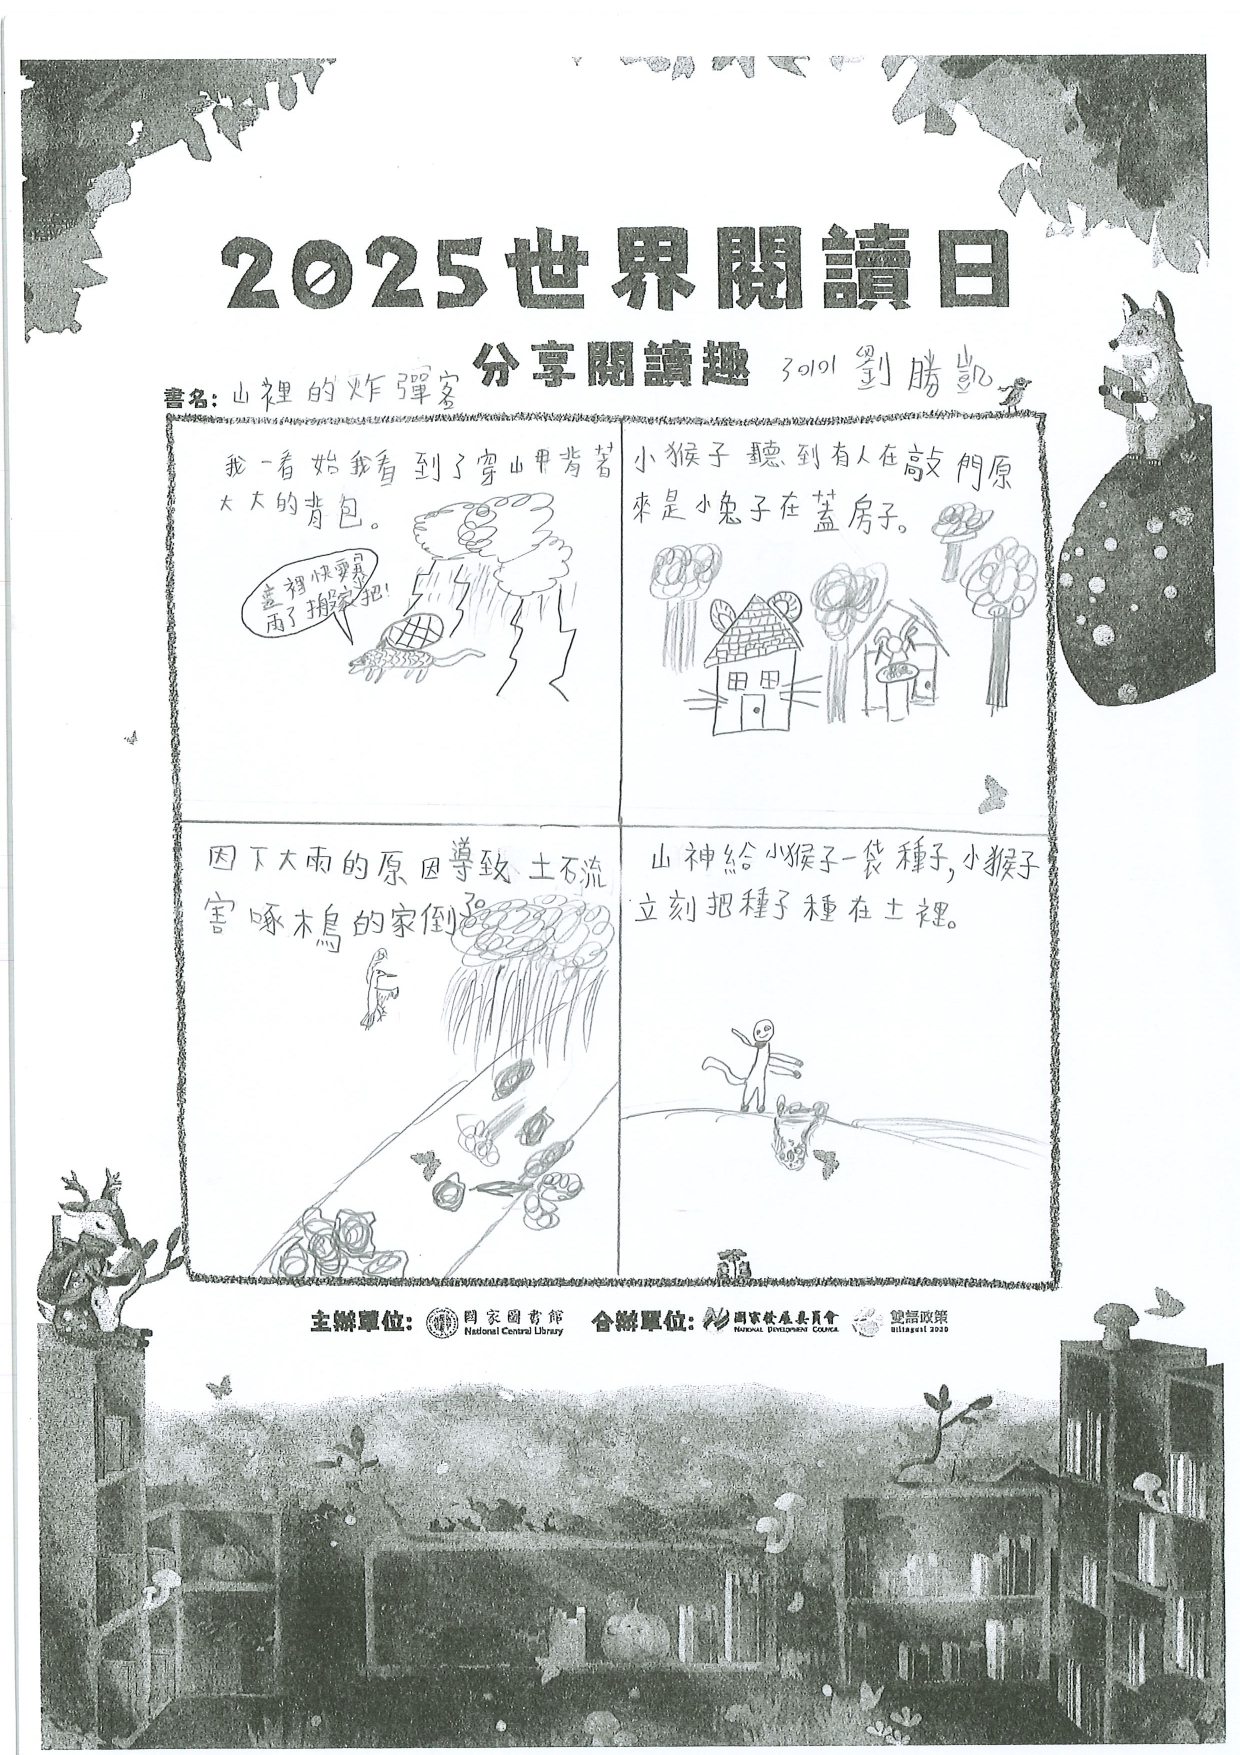 2025世界閱讀日
分享閱讀趣
30101 劉勝凱
書名: 山裡的炸彈客
我一看始我看到了穿山甲背著
大大的背包。
這裡快要暴
雨了搬家把!
小猴子聽到有人在敲門原
來是小兔子在蓋房子。
因下大雨的原因導致土石流
害啄木鳥的家倒了。
山神給小猴子一袋種子,小猴子
立刻把種子種在土裡。
主辦單位: 國家圖書館 National Central Library 合辦單位: 國家發展委員會 NATIONAL DEVELOPMENT COUNCIL 雙語政策 Bilingual 2030